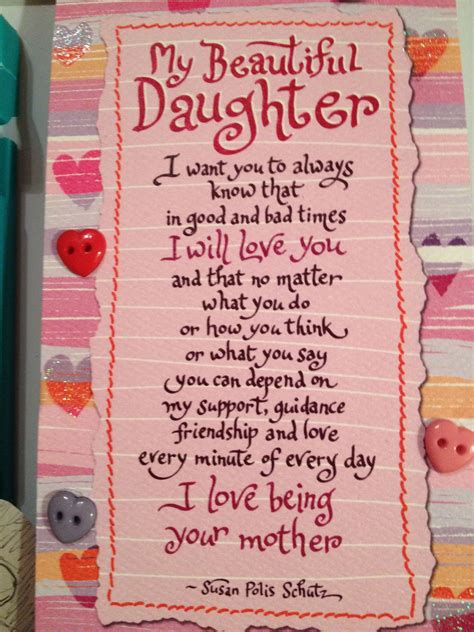 My Beautiful
Daughter
I want you to always
know that
in good and bad times
I will love you
and that no matter
what you do
or how you think
or what you say
you can depend on
my support, guidance
friendship and love
every minute of every day
I love being
your mother
~ Susan Polis Schutz